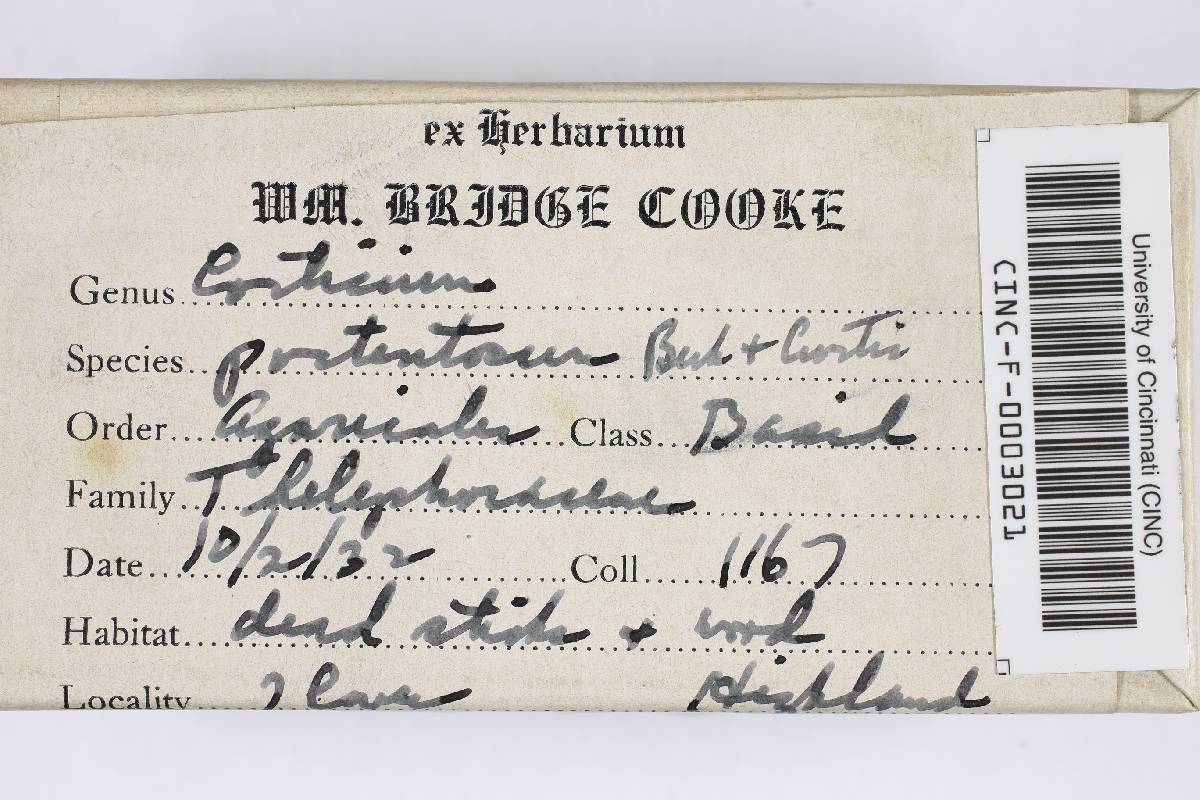 ex Herbarium
WM. BRIDGE COOKE
Genus Corticium
Species portentosum Berk + Curtis
Order Agaricales Class Basid
Family Thelephoraceae
Date 10/2/32 Coll 1167
Habitat dead sticks + wood
Locality 7 Caves Highland
University of Cincinnati (CINC)
CINC-F-0003021